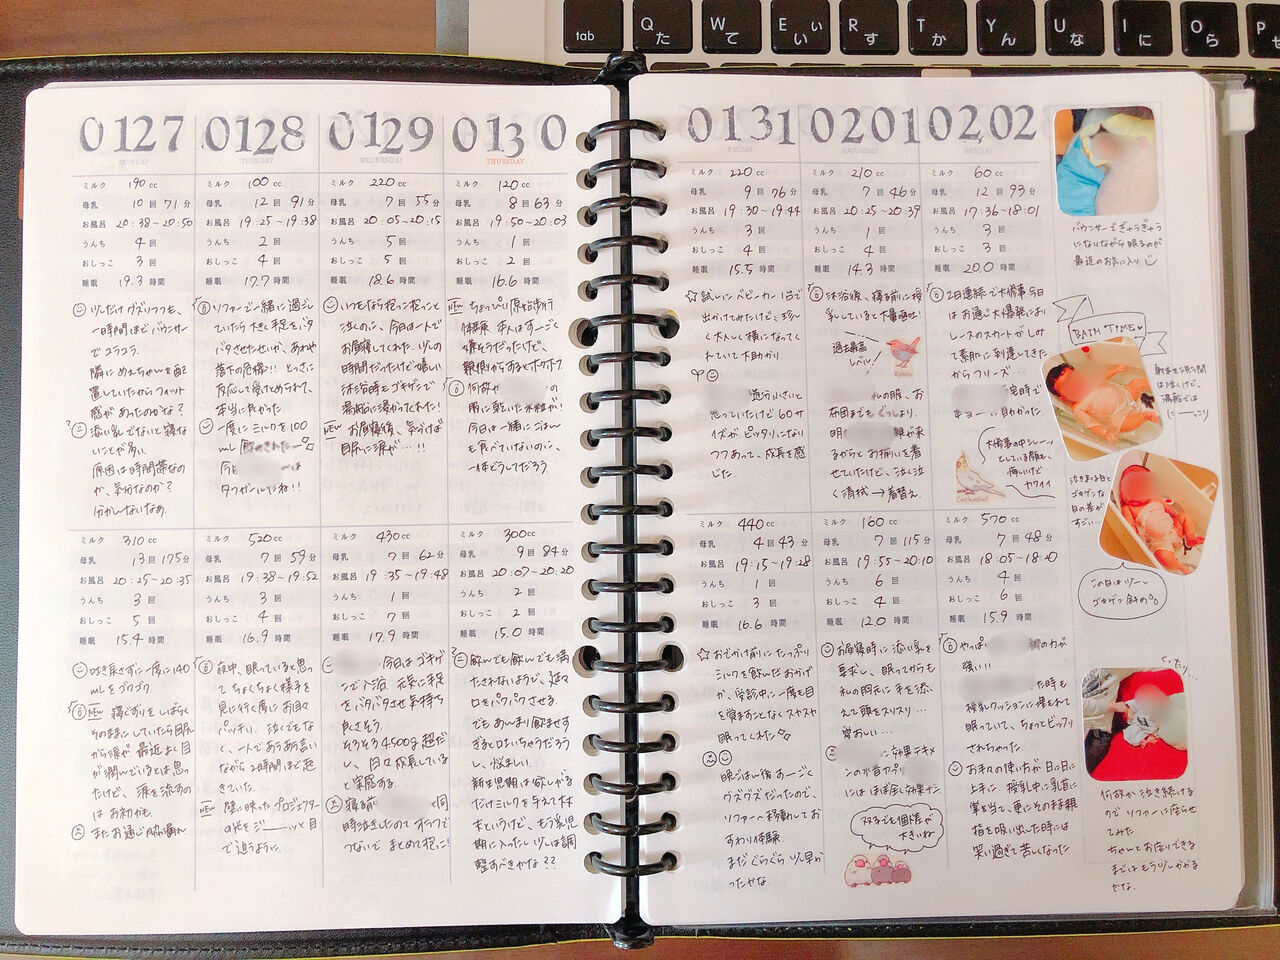 tab
Q
た
W
て
E
ぃ
い
R
す
T
か
Y
ん
U
な
I
に
O
ら
P
せ
0127
MONDAY
ミルク 190 cc
母乳 10 回 71 分
お風呂 20:38~20:50
うんち 4 回
おしっこ 3 回
睡眠 19.3 時間
一時間ほどバウンサー
でユラユラ。
置していたからフィット
感があったのかな?
添い乳でないと寝な
いことが多い。
原因は時間帯なの
か、気分なのか?
分からないなあ。
ミルク 310 cc
母乳 13 回 175 分
お風呂 20:25~20:35
うんち 3 回
おしっこ 5 回
睡眠 15.4 時間
吐き戻さずに一度に140
mLをゴクゴク。
NEW 寝ぐずりをしばらく
そのままにしていたら目尻
から涙が。最近よく目
が潤んでいるとは思っ
たけど、涙を流すの
はお初かも。
またお通じ脇漏れ
0128
TUESDAY
ミルク 100 cc
母乳 12 回 91 分
お風呂 19:25~19:38
うんち 2 回
おしっこ 4 回
睡眠 17.7 時間
ソファーで一緒に過ごし
ていたら大きく手足をバタ
バタさせたせいか、あわや
落下の危機!! とっさに
反応して受けとめられて、
本当に良かった。
一度にミルクを100
mL
タフガールだね!!
ミルク 520 cc
母乳 7 回 59 分
お風呂 19:38~19:52
うんち 3 回
おしっこ 4 回
睡眠 16.9 時間
夜中、眠っていると思っ
てちょくちょく様子を
見に行く度にお目々
パッチリ。泣くでもな
く、一人であうあう言い
ながら2時間ほど起
きていた。
NEW 壁に映ったプロジェクター
の光をジーーッと目
で追うように。
0129
WEDNESDAY
ミルク 220 cc
母乳 7 回 55 分
お風呂 20:05~20:15
うんち 5 回
おしっこ 5 回
睡眠 18.6 時間
いつもなら抱っこ抱っこと
泣くのに、今日は一人で
お昼寝してくれた。少しの
時間だったけど嬉しい
沐浴時もゴキゲンで
湯船に浸かってくれた!
NEW お昼寝後、気づけば
目尻に涙が…!!
ミルク 430 cc
母乳 7 回 62 分
お風呂 19:35~19:48
うんち 1 回
おしっこ 7 回
睡眠 17.9 時間
今日はゴキゲ
ンで入浴。元気に手足
をバタバタさせ気持ち
良さそう。
そろそろ4500g超だ
し、日々成長している
と実感する。
寝る前 同
時泣きしたのでオシャブリで
つないでまとめて抱っこ!
0130
THURSDAY
ミルク 120 cc
母乳 8 回 63 分
お風呂 19:50~20:03
うんち 1 回
おしっこ 2 回
睡眠 16.6 時間
NEW ちょっぴり原始歩行
体験。本人はすーごく
嫌そうだったけど、
親側からするとホクホク
何故か の
腕に乾いた米粒が!
今日は一緒にごはん
も食べていないのに、
一体どうしてだろう。
ミルク 300 cc
母乳 9 回 84 分
お風呂 20:07~20:20
うんち 2 回
おしっこ 2 回
睡眠 15.0 時間
飲んでも飲んでも満
たされないようで、延々
口をパクパクさせる。
でもあんまり飲ませす
ぎると吐いちゃうだろう
し、悩ましい。
新生児期は欲しがる
だけミルクを与えてOK
だというけど、もう乳児
期に入ったし少しは調
整すべきかな??
0131
FRIDAY
ミルク 220 cc
母乳 9 回 76 分
お風呂 19:30~19:44
うんち 3 回
おしっこ 4 回
睡眠 15.5 時間
試しにベビーカー1台で
出かけてみたけど、珍し
く大人しく横になってく
れていて大助かり。
思っていたけど60サ
イズがピッタリになり
つつあって、成長を感
じた。
ミルク 440 cc
母乳 4 回 43 分
お風呂 19:15~19:28
うんち 1 回
おしっこ 3 回
睡眠 16.6 時間
おでかけ前にたっぷり
ミルクを飲んだおかげ
か、受診中に一度も目
を覚ますことなくスヤスヤ
眠ってくれた
晩ごはん後すーごく
グズグズだったので、
ソファーへ移動してお
すわり体験。
まだぐらぐら 少し早か
ったかな。
0201
SATURDAY
ミルク 210 cc
母乳 7 回 46 分
お風呂 20:25~20:39
うんち 1 回
おしっこ 4 回
睡眠 14.3 時間
沐浴後、寝る前に授
乳していると大量嘔吐!
過去最高
レベル!
Robin
私の服、お
布団までぐっしょり。
るからとお揃いを着
せていたけど、泣く泣
く清拭→着替え。
ミルク 160 cc
母乳 7 回 115 分
お風呂 19:55~20:10
うんち 6 回
おしっこ 4 回
睡眠 12.0 時間
お昼寝時に添い乳を
要求し、眠ってからも
私の胸元に手を添
えて頭をスリスリ…
愛おしい…
に効果テキメ
ンの水音アプリ
には ほぼ全く効果ナシ。
双子でも個性が
大きいね
0202
SUNDAY
ミルク 60 cc
母乳 12 回 93 分
お風呂 17:36~18:01
うんち 3 回
おしっこ 3 回
睡眠 20.0 時間
2日連続で大惨事 今日
はお通じ大爆発により
レースのスカートがしみ
て素肌に到達してきた
からフリーズ…
在宅時で
助かった。
大惨事の中シレーッ
としている顔も、
悔しいけど
カワイイ
Cockatiel
ミルク 570 cc
母乳 7 回 48 分
お風呂 18:05~18:20
うんち 4 回
おしっこ 6 回
睡眠 15.9 時間
やっぱり の力が
強い!!
た時も
授乳クッションに埋もれて
眠っていて、ちょっとビックリ
させれちゃった。
お手々の使い方が日に日に
上手に。授乳中に乳首に
掌を当て、更にそのまま親
指を吸い出した時には
笑い過ぎて苦しくなった。
バウンサーでぎゅうぎゅう
になりながら眠るのが
最近のお気に入り
BATH TIME
は泣くけど、
湯船では
にーっこり
泣きまくる日と
ゴキゲンな
日の差が
すごい…
この日は少ーし
ゴキゲン斜め
ぐったり…
何故か泣き続ける
のでソファーに座らせ
てみた。
ちゃんとお座りできる
までは もう少しかかる
かな。